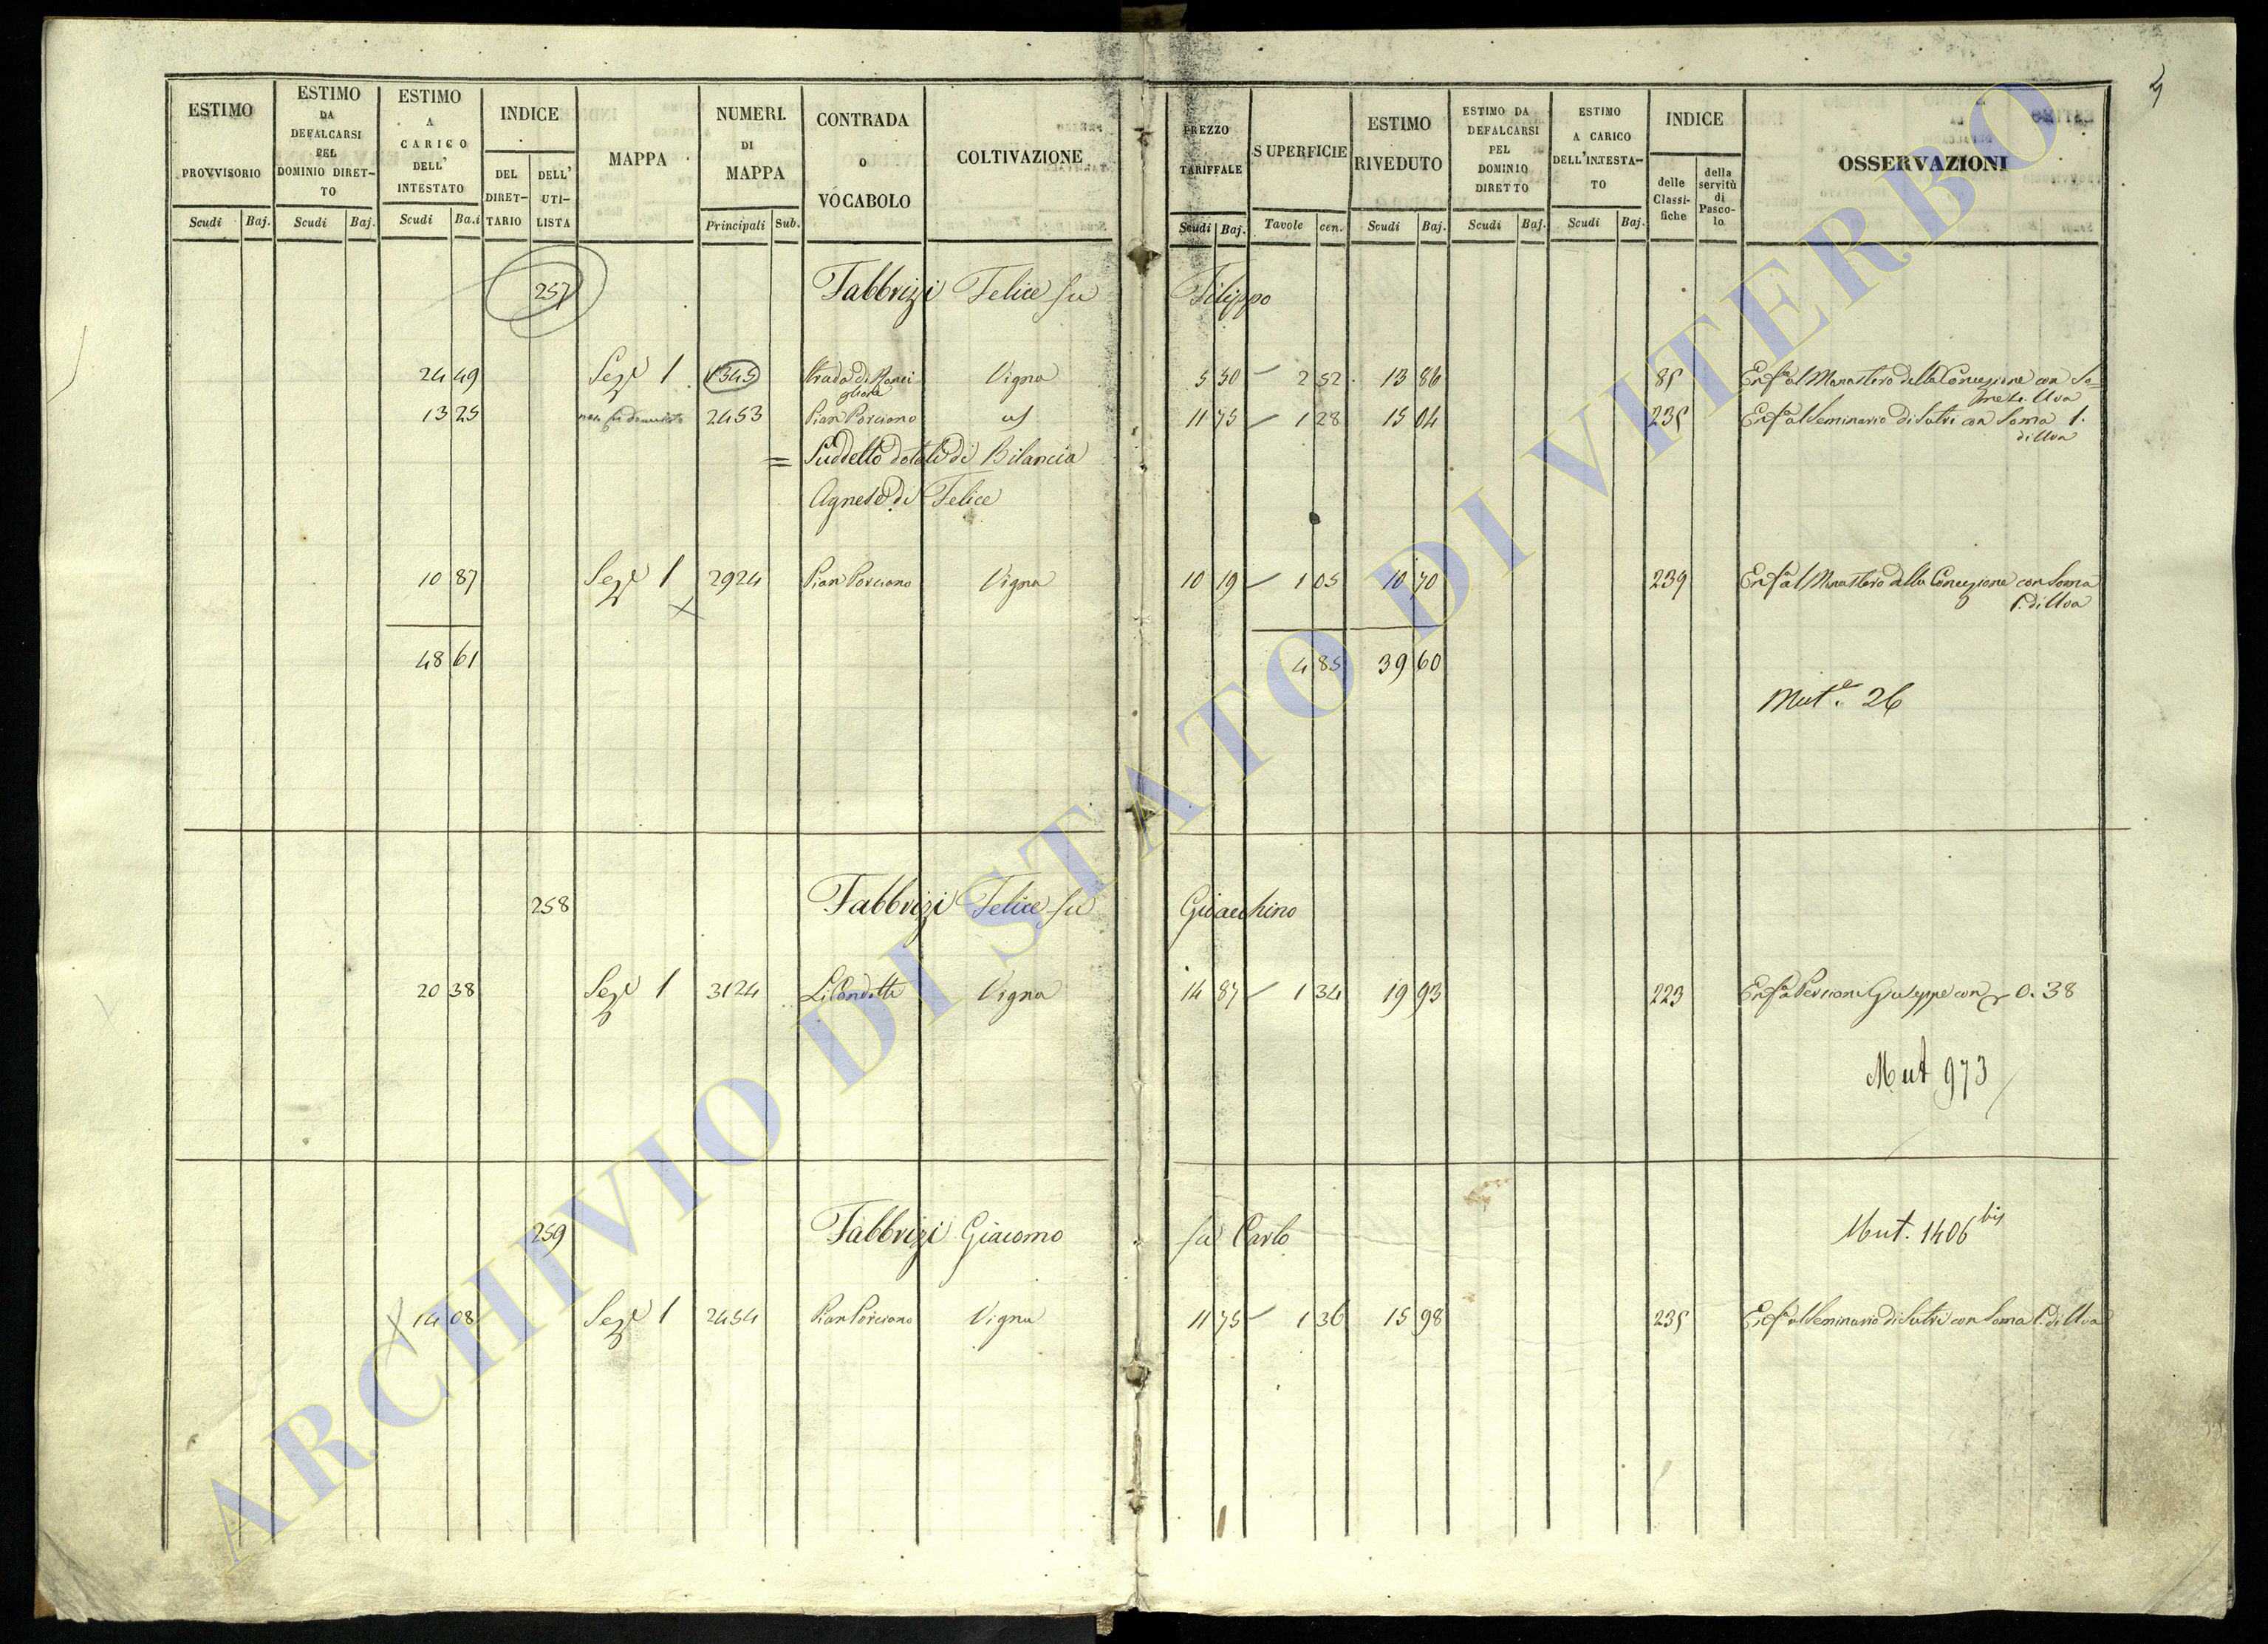 5
ESTIMO PROVVISORIO Scudi Baj.
ESTIMO DA DEFALCARSI PEL DOMINIO DIRET-TO Scudi Baj.
ESTIMO A CARICO DELL' INTESTATO Scudi Ba.i
INDICE DEL DIRET-TARIO DELL' UTI-LISTA
MAPPA
NUMERI. DI MAPPA Principali Sub.
CONTRADA O VOCABOLO
COLTIVAZIONE
PREZZO TARIFFALE Scudi Baj.
SUPERFICIE Tavole cen.
ESTIMO RIVEDUTO Scudi Baj.
ESTIMO DA DEFALCARSI PEL DOMINIO DIRETTO Scudi Baj.
ESTIMO A CARICO DELL'INTESTA-TO Scudi Baj.
INDICE delle Classi-fiche della servitù di Pasco-lo
OSSERVAZIONI
257 Fabbrizi Felice fu Filippo
24 49 Sez.e 1 1345 Strada di Ronci 5 50 2 52 13 86 85 Enf.a al Monastero della Concezione con So=
glione Vigna me 2. Uva
13 25 2453 Pian Porciano 11 75 1 28 15 04 235 Enf.a al Seminario di Sutri con Soma 1.
di Uva
= Suddetto dotale di Bilancia
Agnese di Felice
10 87 Sez.e 1 2924 Pian Porciano Vigna 10 19 1 05 10 70 239 Enf.a al Monastero della Concezione con Soma
1. di Uva
48 61 4 85 39 60
Mut.e 26
258 Fabbrizi Felice fu Gioacchino
20 38 Sez.e 1 3124 Li Condotti Vigna 14 87 1 34 19 93 223 Enf.a Porciani Giuseppe con 0.38
Mut 973
259 Fabbrizi Giacomo fu Carlo Mut. 1406 bis
14 08 Sez.e 1 2454 Pian Porciano Vigna 11 75 1 36 15 98 235 Enf.a al Seminario di Sutri con Soma 1. di Uva
ARCHIVIO DI STATO DI VITERBO